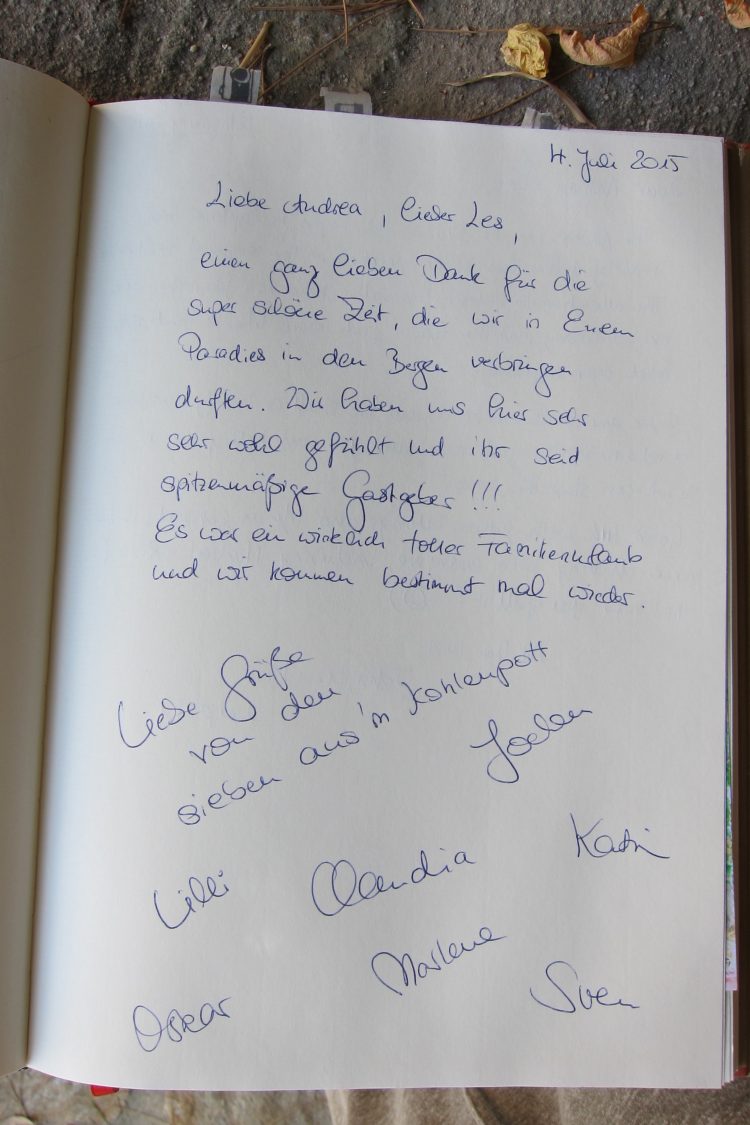 4. Juli 2015
Liebe Andrea, lieber Les,
einen ganz lieben Dank für die
super schöne Zeit, die wir in Eurem
Paradies in den Bergen verbringen
durften. Wir haben uns hier sehr
sehr wohl gefühlt und ihr seid
spitzenmäßige Gastgeber!!!
Es war ein wirklich toller Familienurlaub
und wir kommen bestimmt mal wieder.
Liebe Grüße
von den
sieben aus'm Kohlenpott
Jochen
Lilli Claudia Katrin
Marlene
Oskar Sven